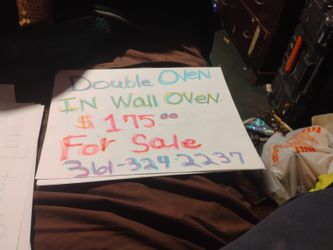 Double Oven
IN Wall Oven
$175.00
For Sale
361-324-2237